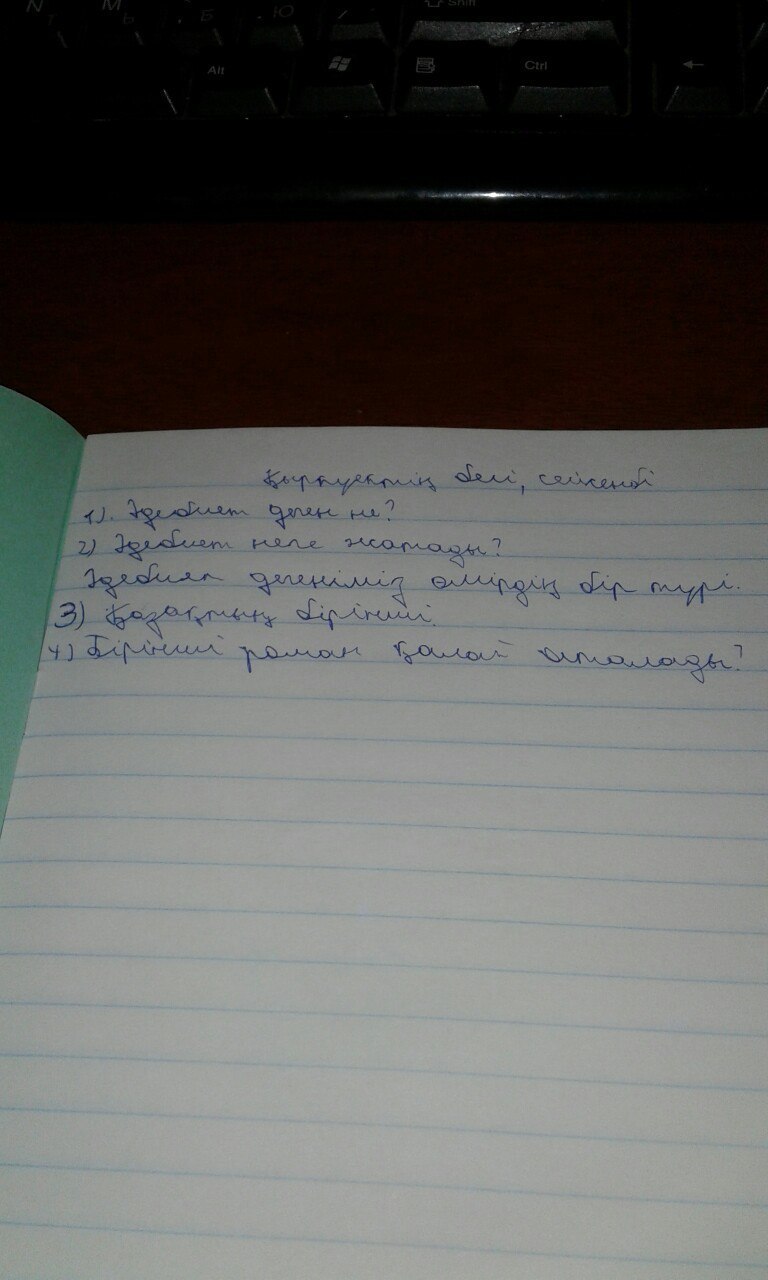 N М Б Ю Shift
Alt Ctrl ←
Қыркүектің бесі, сейсенбі
1). Әдебиет деген не?
2) Әдебиет неге жатады?
Әдебият дегеніміз өмірдің бір түрі.
3) Қазақтың бірінші.
4) Бірінші роман қалай аталады?